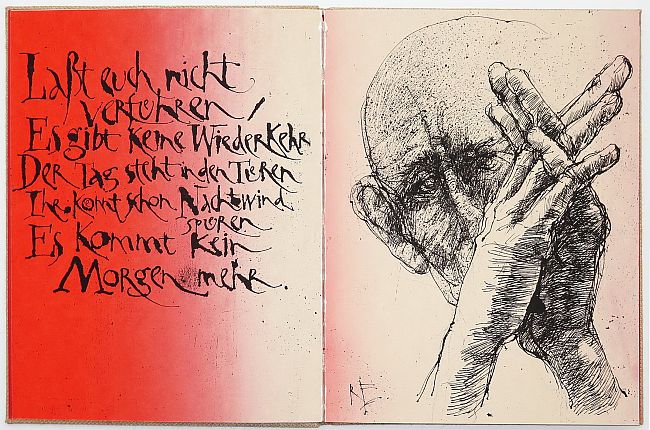 Laßt euch nicht
verführen!
Es gibt keine Wiederkehr
Der Tag steht in den Türen
Ihr könnt schon Nachtwind
spüren
Es kommt kein
Morgen mehr.